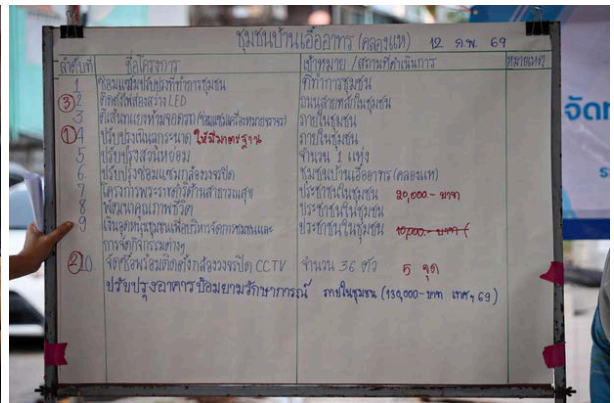 ชุมชนบ้านเอื้ออาทร (คลองแห) 12 ก.พ. 69
ลำดับที่ ชื่อโครงการ เป้าหมาย / สถานที่ดำเนินการ หมายเหตุ
1 ซ่อมแซมปรับปรุงที่ทำการชุมชน ที่ทำการชุมชน
③ 2 ติดตั้งไฟส่องสว่าง LED ถนนสายหลักในชุมชน
3 ตีเส้นแบ่งห้ามจอดรถ ภายในชุมชน
① 4 ปรับปรุงเนินลูกระนาด ให้มีมาตรฐาน ภายในชุมชน
5 ปรับปรุงสวนหย่อม จำนวน 1 แห่ง
6 ปรับปรุงซ่อมแซมกล้องวงจรปิด ชุมชนบ้านเอื้ออาทร (คลองแห)
7 โครงการพระราชดำริด้านสาธารณสุข ประชาชนในชุมชน 20,000.- บาท
8 พัฒนาคุณภาพชีวิต ประชาชนในชุมชน
9 เงินอุดหนุนชุมชนเพื่อบริหารจัดการชุมชนและ ประชาชนในชุมชน 10,000.- บาท
การจัดกิจกรรมต่างๆ
② 10 จัดซื้อพร้อมติดตั้งกล้องวงจรปิด CCTV จำนวน 36 ตัว 5 จุด
ปรับปรุงอาคารป้อมยามรักษาการณ์ ภายในชุมชน (130,000-บาท เทศฯ 69)
จัดท